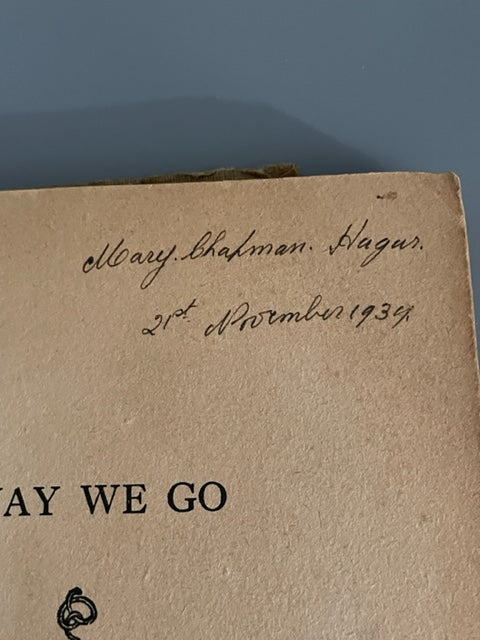 Mary. Chapman. Hagar.
21st November 1934.
WAY WE GO